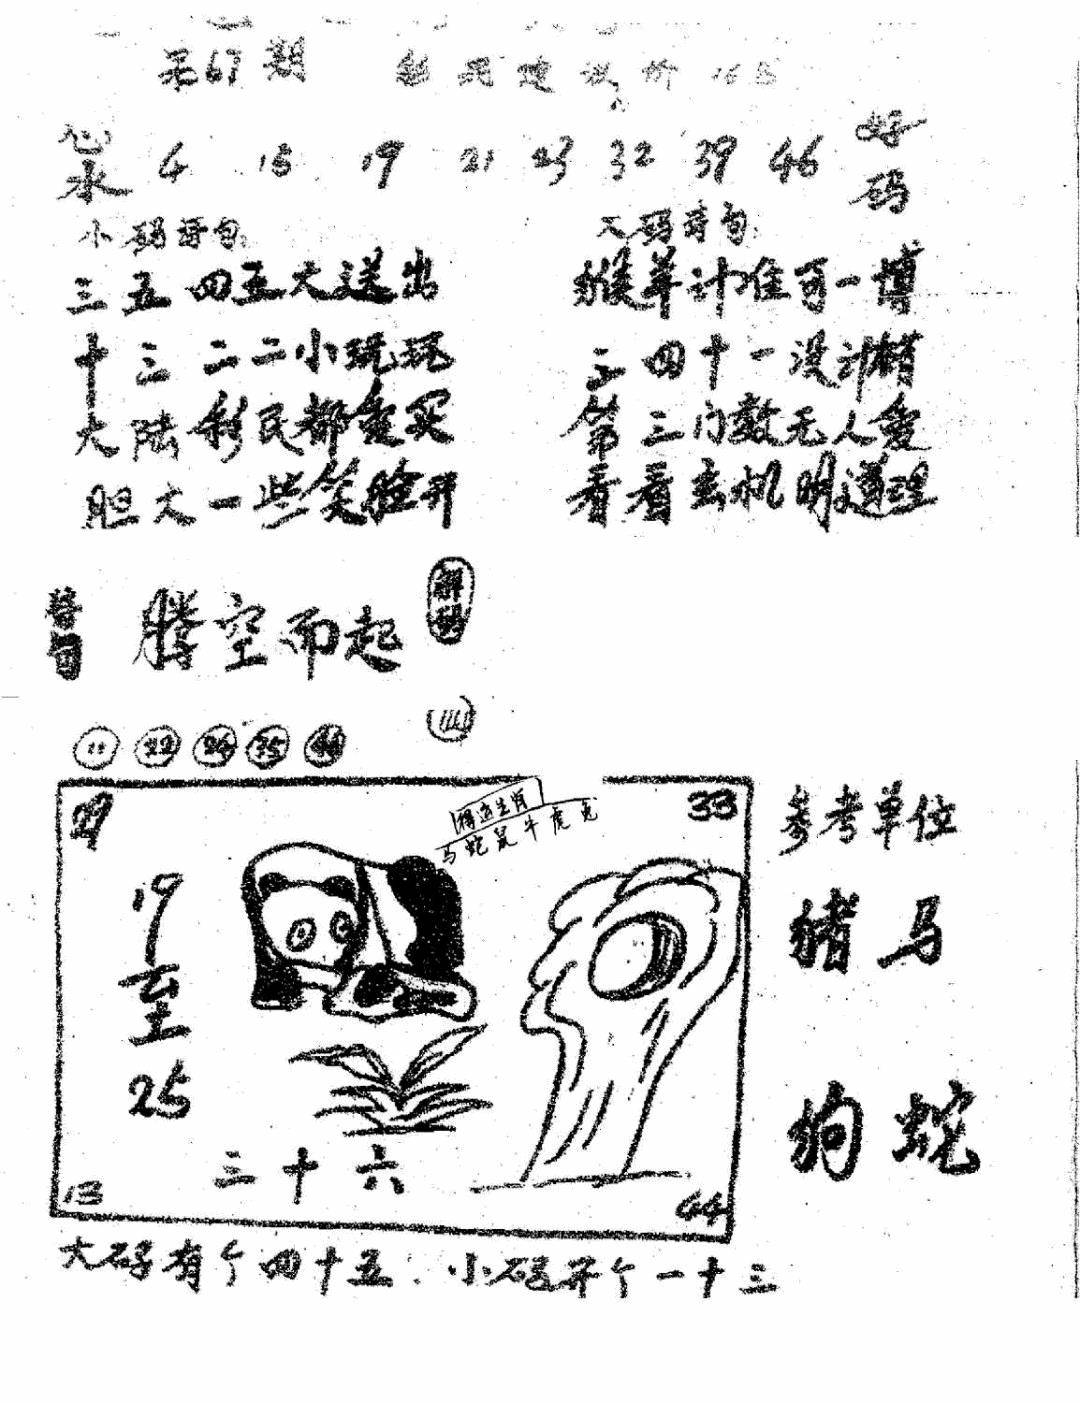 第67期
心水 4 15 19 21 23 32 39 46 好码
小码诗句
大码诗句
三五四五大送出
猴羊计准可一博
十三二二小玩玩
三四十一没计错
大陆彩民都爱买
第三门数无人爱
胆大一些笑脸开
看看玄机明道理
腾空而起
解码
11 22 24 35 44
29 33
马蛇鼠牛虎兔
参考单位
19至25
猪马
狗蛇
三十六
13 44
大码有个四十五 小码开个一十三